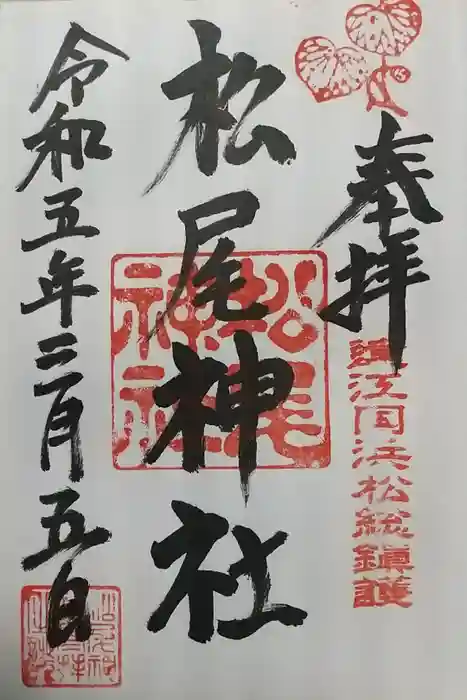 奉拝
遠江国浜松総鎮護
松尾神社
松尾神社
令和五年三月五日